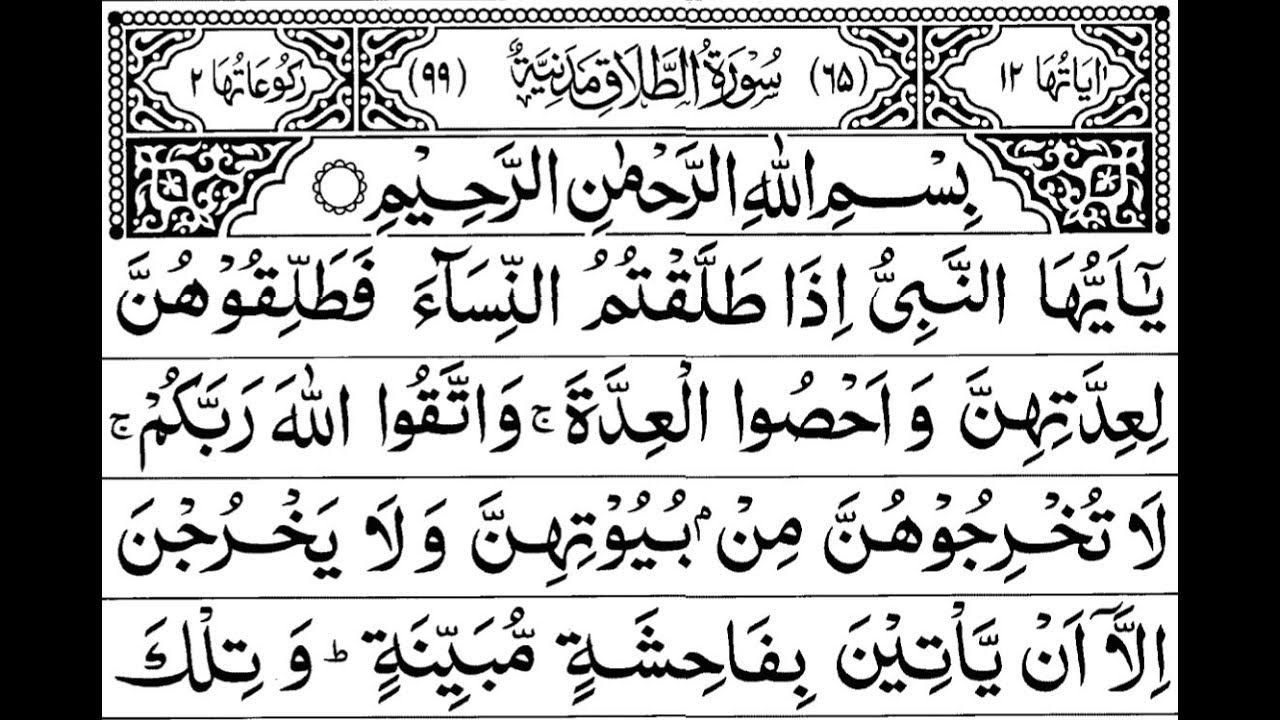 اٰيَاتُهَا ١٢ (٦٥) سُوْرَةُ الطَّلَاقِ مَدَنِيَّةٌ (٩٩) رَكُوْعَاتُهَا ٢
بِسْمِ اللّٰهِ الرَّحْمٰنِ الرَّحِيْمِ ۝
يٰۤاَيُّهَا النَّبِىُّ اِذَا طَلَّقْتُمُ النِّسَآءَ فَطَلِّقُوْهُنَّ
لِعِدَّتِهِنَّ وَ اَحْصُوا الْعِدَّةَ ۚ وَ اتَّقُوا اللّٰهَ رَبَّكُمْ ۚ
لَا تُخْرِجُوْهُنَّ مِنْۢ بُيُوْتِهِنَّ وَ لَا يَخْرُجْنَ
اِلَّاۤ اَنْ يَّاْتِيْنَ بِفَاحِشَةٍ مُّبَيِّنَةٍ ؕ وَ تِلْكَ